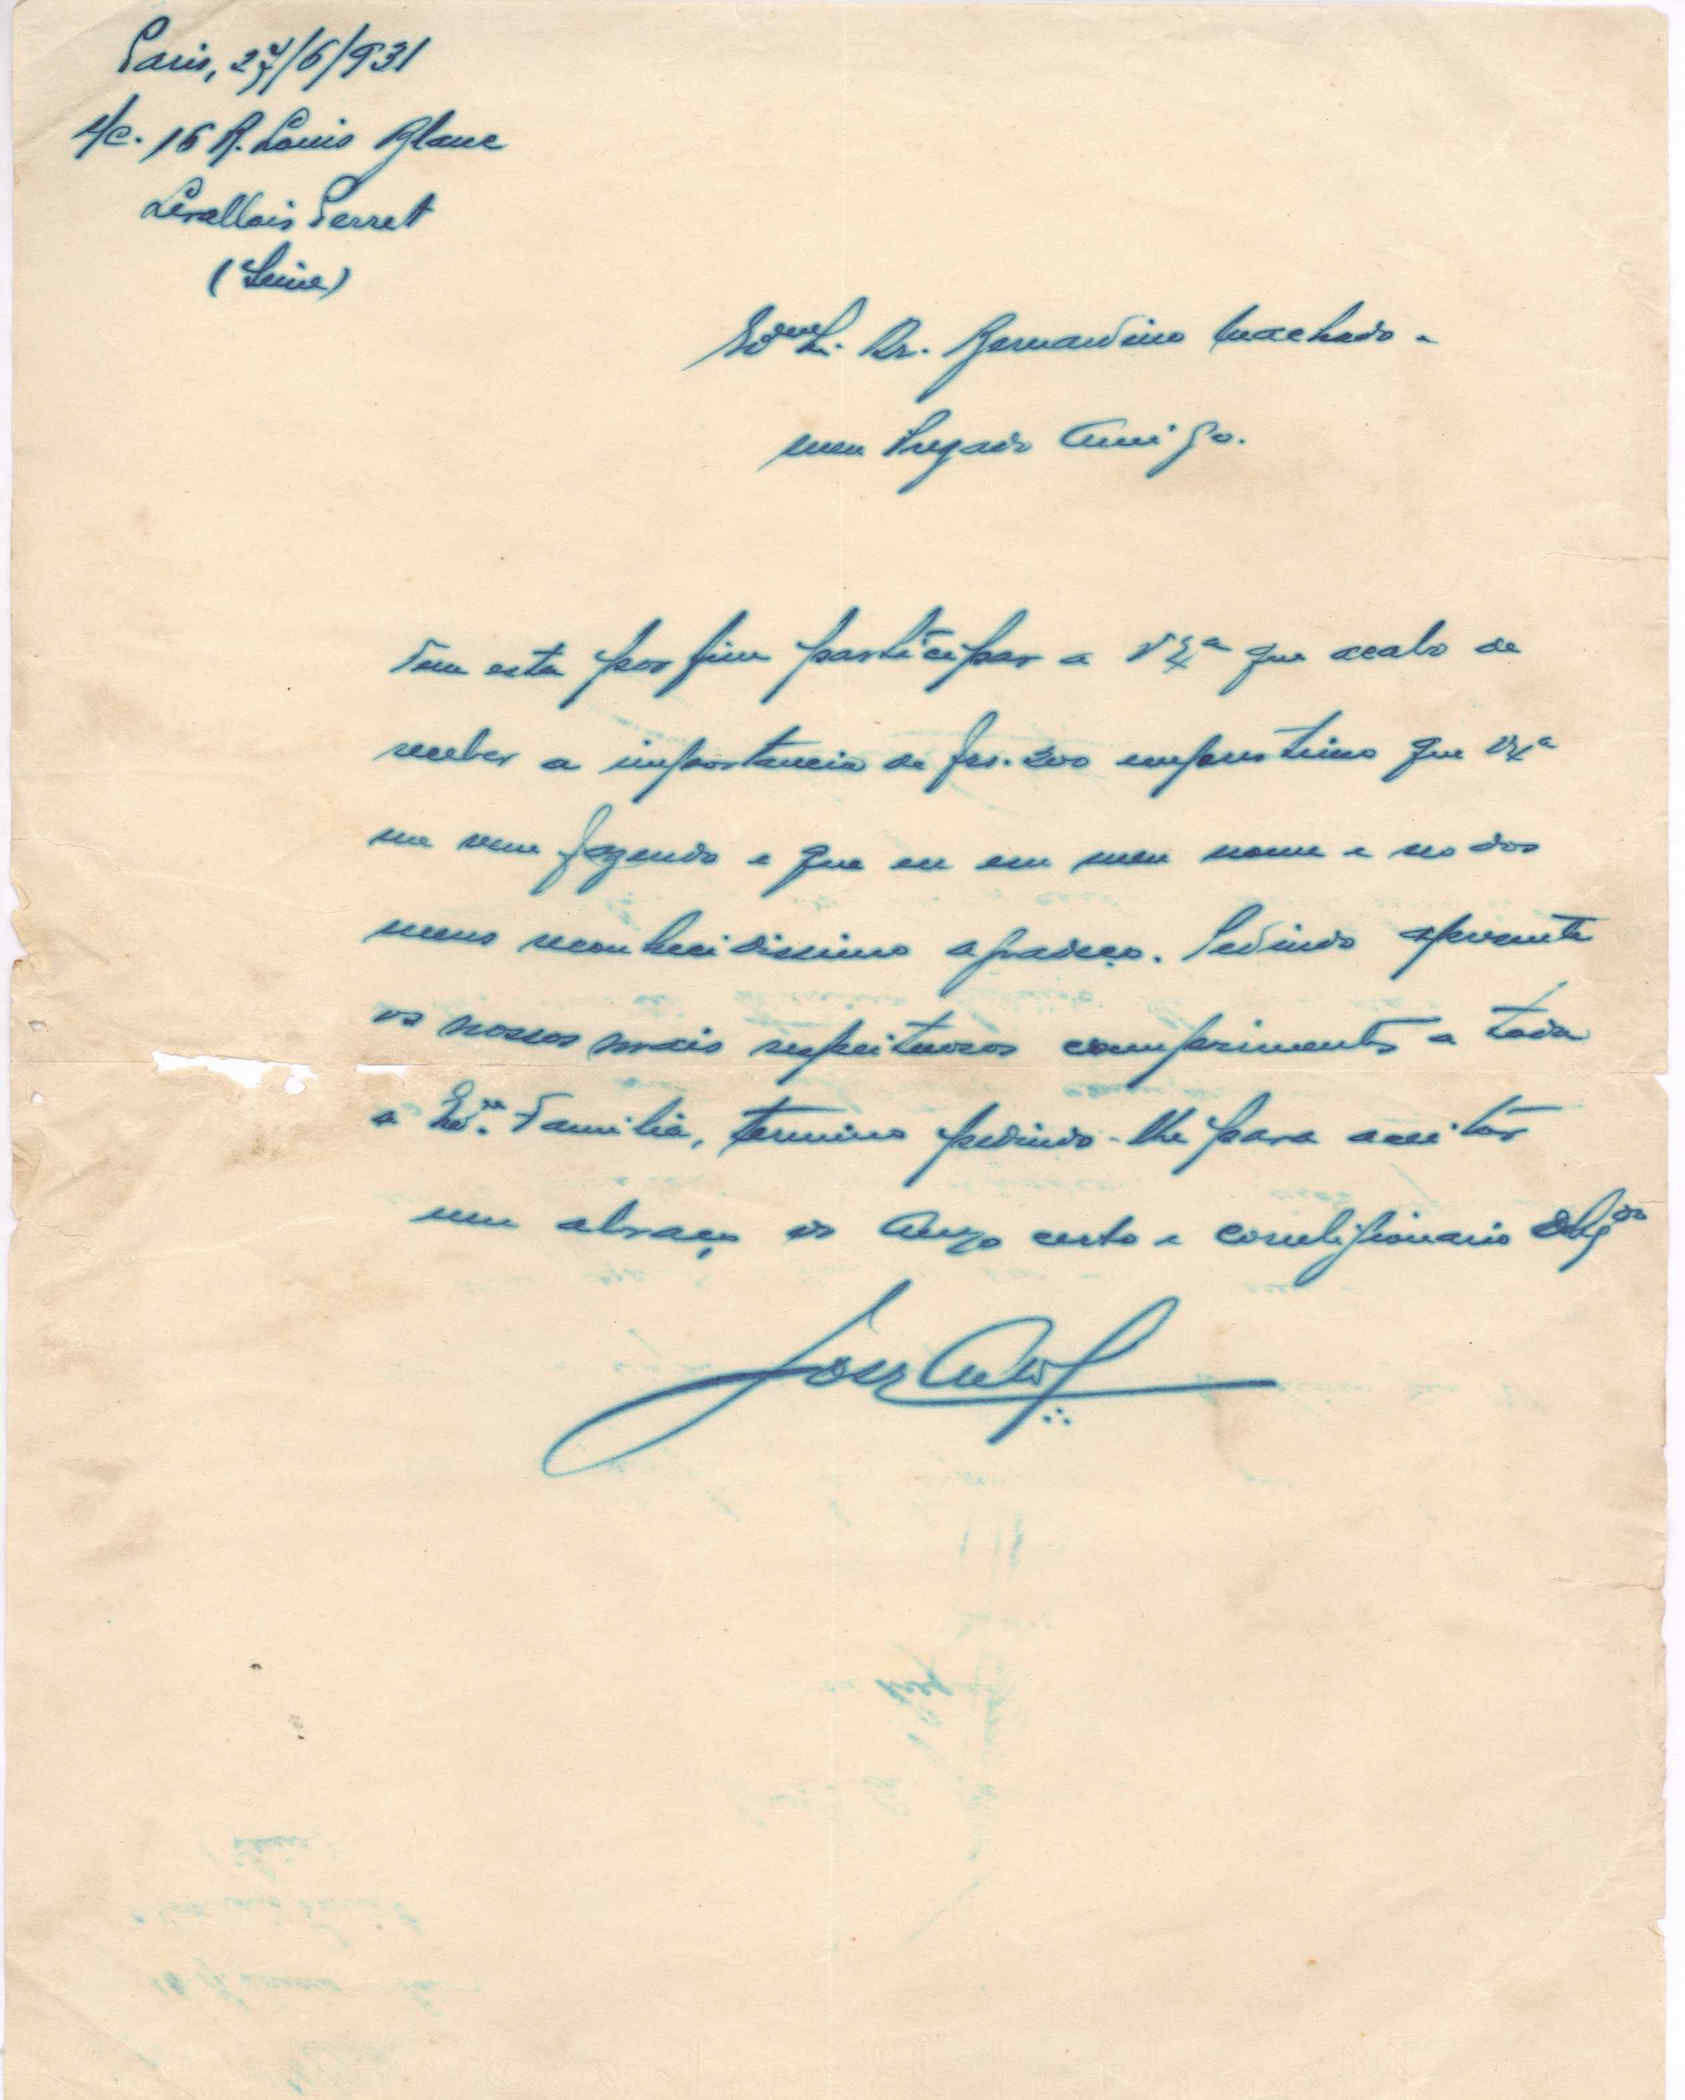 Paris, 27/6/931
S/c. 16 R. Louis Blanc
Levallois Perret
(Seine)
Exmo Sr. Dr. Bernardino Machado
meu Prezado Amigo.
Vem esta por fim participar a V Exª que acabo de
receber a importancia de frs. 200 emprestimo que V Exª
me vem fazendo e que eu em meu nome e no dos
meus reconhecidissimo agradeço. Pedindo apresente
os nossos mais respeituosos comprimentos a toda
a Exma. Familia, termino pedindo-lhe para aceitar
um abraço do Amgo certo e correligionario Obrgdo